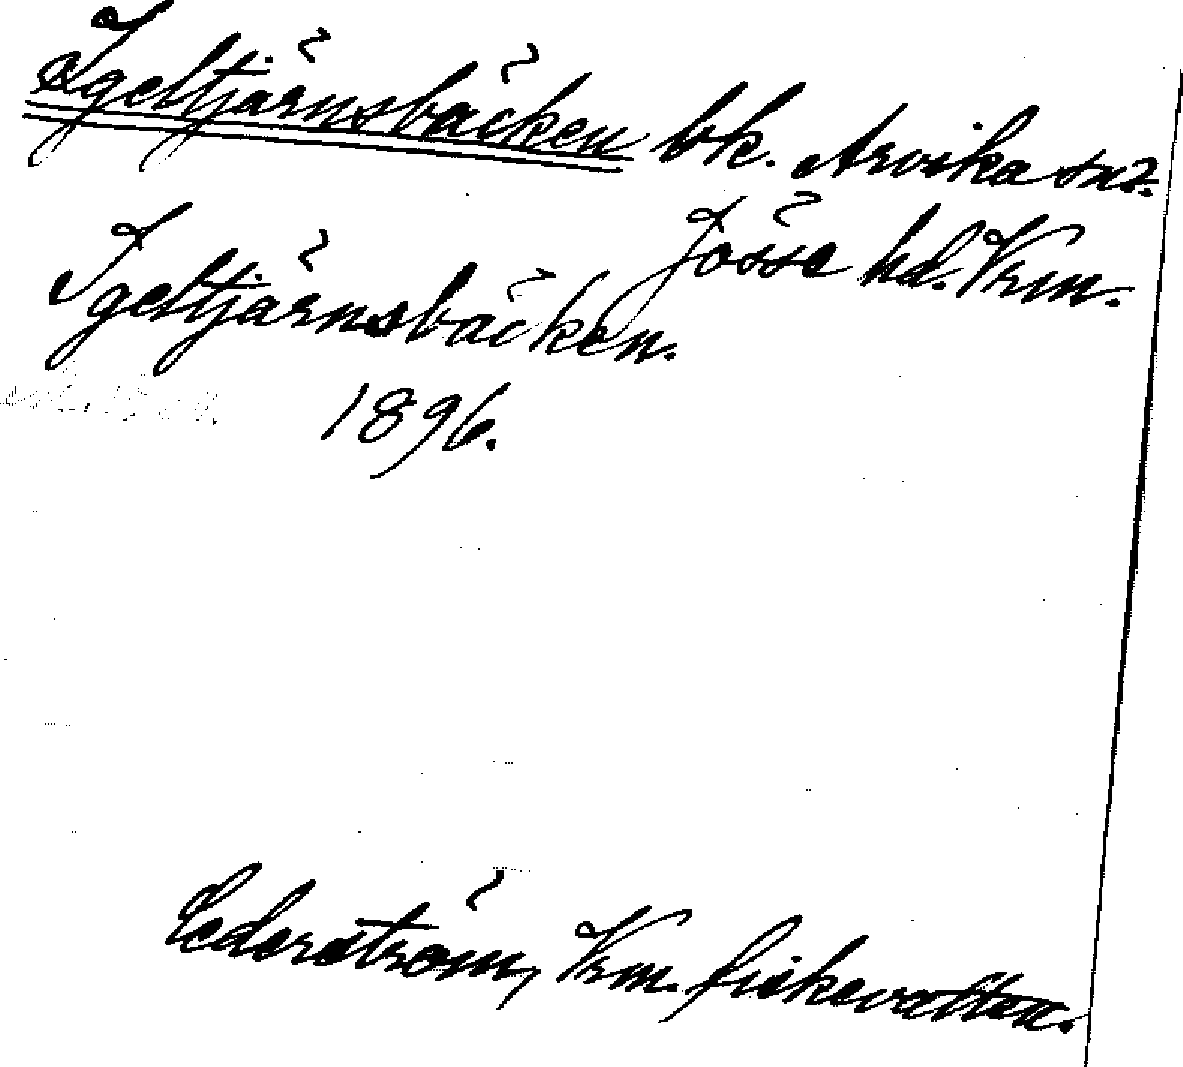 Igeltjärnsbäcken bk. Arvika sn.
Jösse hd. Vrm.
Igeltjärnsbäcken.
1896.
Cederström, Vrm. fiskevatten.